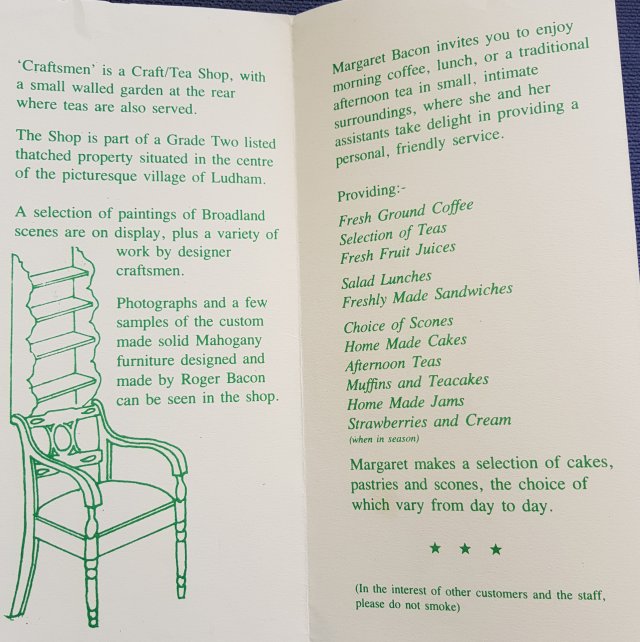 'Craftsmen' is a Craft/Tea Shop, with
a small walled garden at the rear
where teas are also served.
The Shop is part of a Grade Two listed
thatched property situated in the centre
of the picturesque village of Ludham.
A selection of paintings of Broadland
scenes are on display, plus a variety of
work by designer
craftsmen.
Photographs and a few
samples of the custom
made solid Mahogany
furniture designed and
made by Roger Bacon
can be seen in the shop.
Margaret Bacon invites you to enjoy
morning coffee, lunch, or a traditional
afternoon tea in small, intimate
surroundings, where she and her
assistants take delight in providing a
personal, friendly service.
Providing:-
Fresh Ground Coffee
Selection of Teas
Fresh Fruit Juices
Salad Lunches
Freshly Made Sandwiches
Choice of Scones
Home Made Cakes
Afternoon Teas
Muffins and Teacakes
Home Made Jams
Strawberries and Cream
(when in season)
Margaret makes a selection of cakes,
pastries and scones, the choice of
which vary from day to day.
★ ★ ★
(In the interest of other customers and the staff,
please do not smoke)